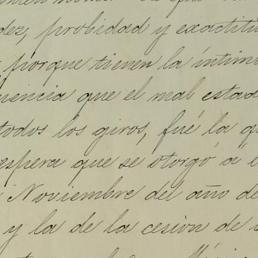 dez, probidad y exactitu
porque tienen la íntim
uencia que el mal estad
todos los giros, fué la q
espera que se otorgó a
Noviembre del año de
y la de la cesion de